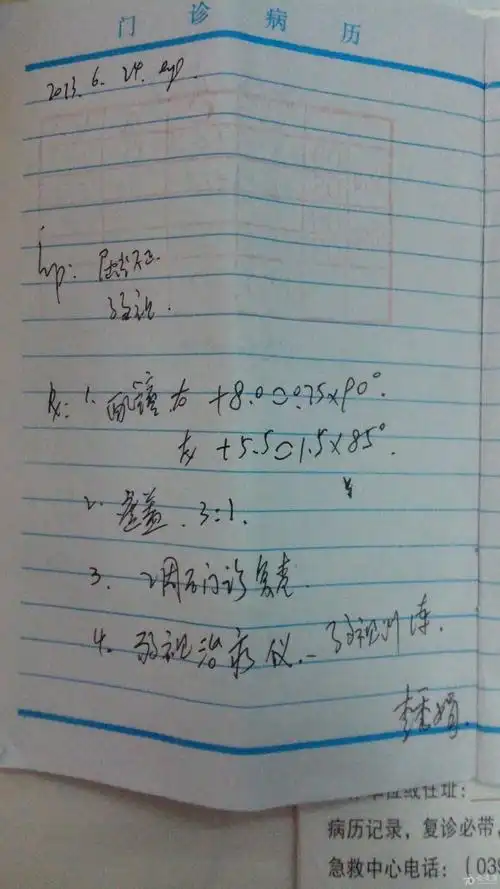 门诊病历
2013.6.24.
Imp: 屈光不正.
弱视.
Rx: 1. 配镜 右 +8.0⊃0.75×90°.
左 +5.5⊃1.5×85°.
2. 遮盖. 3:1.
3. 2周后门诊复查.
4. 弱视治疗仪. 弱视训练.
病历记录，复诊必带，
急救中心电话：（039